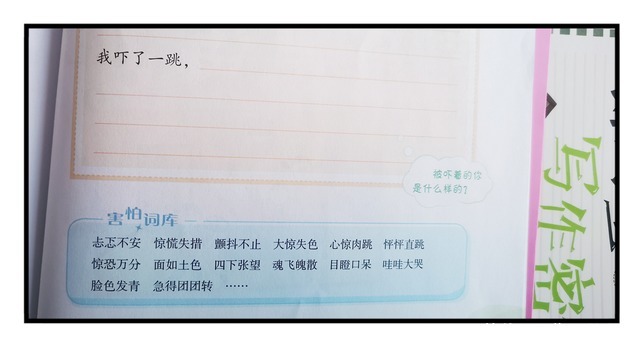 我吓了一跳，
被吓着的你
是什么样的？
害怕词库
忐忑不安 惊慌失措 颤抖不止 大惊失色 心惊肉跳 怦怦直跳
惊恐万分 面如土色 四下张望 魂飞魄散 目瞪口呆 哇哇大哭
脸色发青 急得团团转 ……
写作密